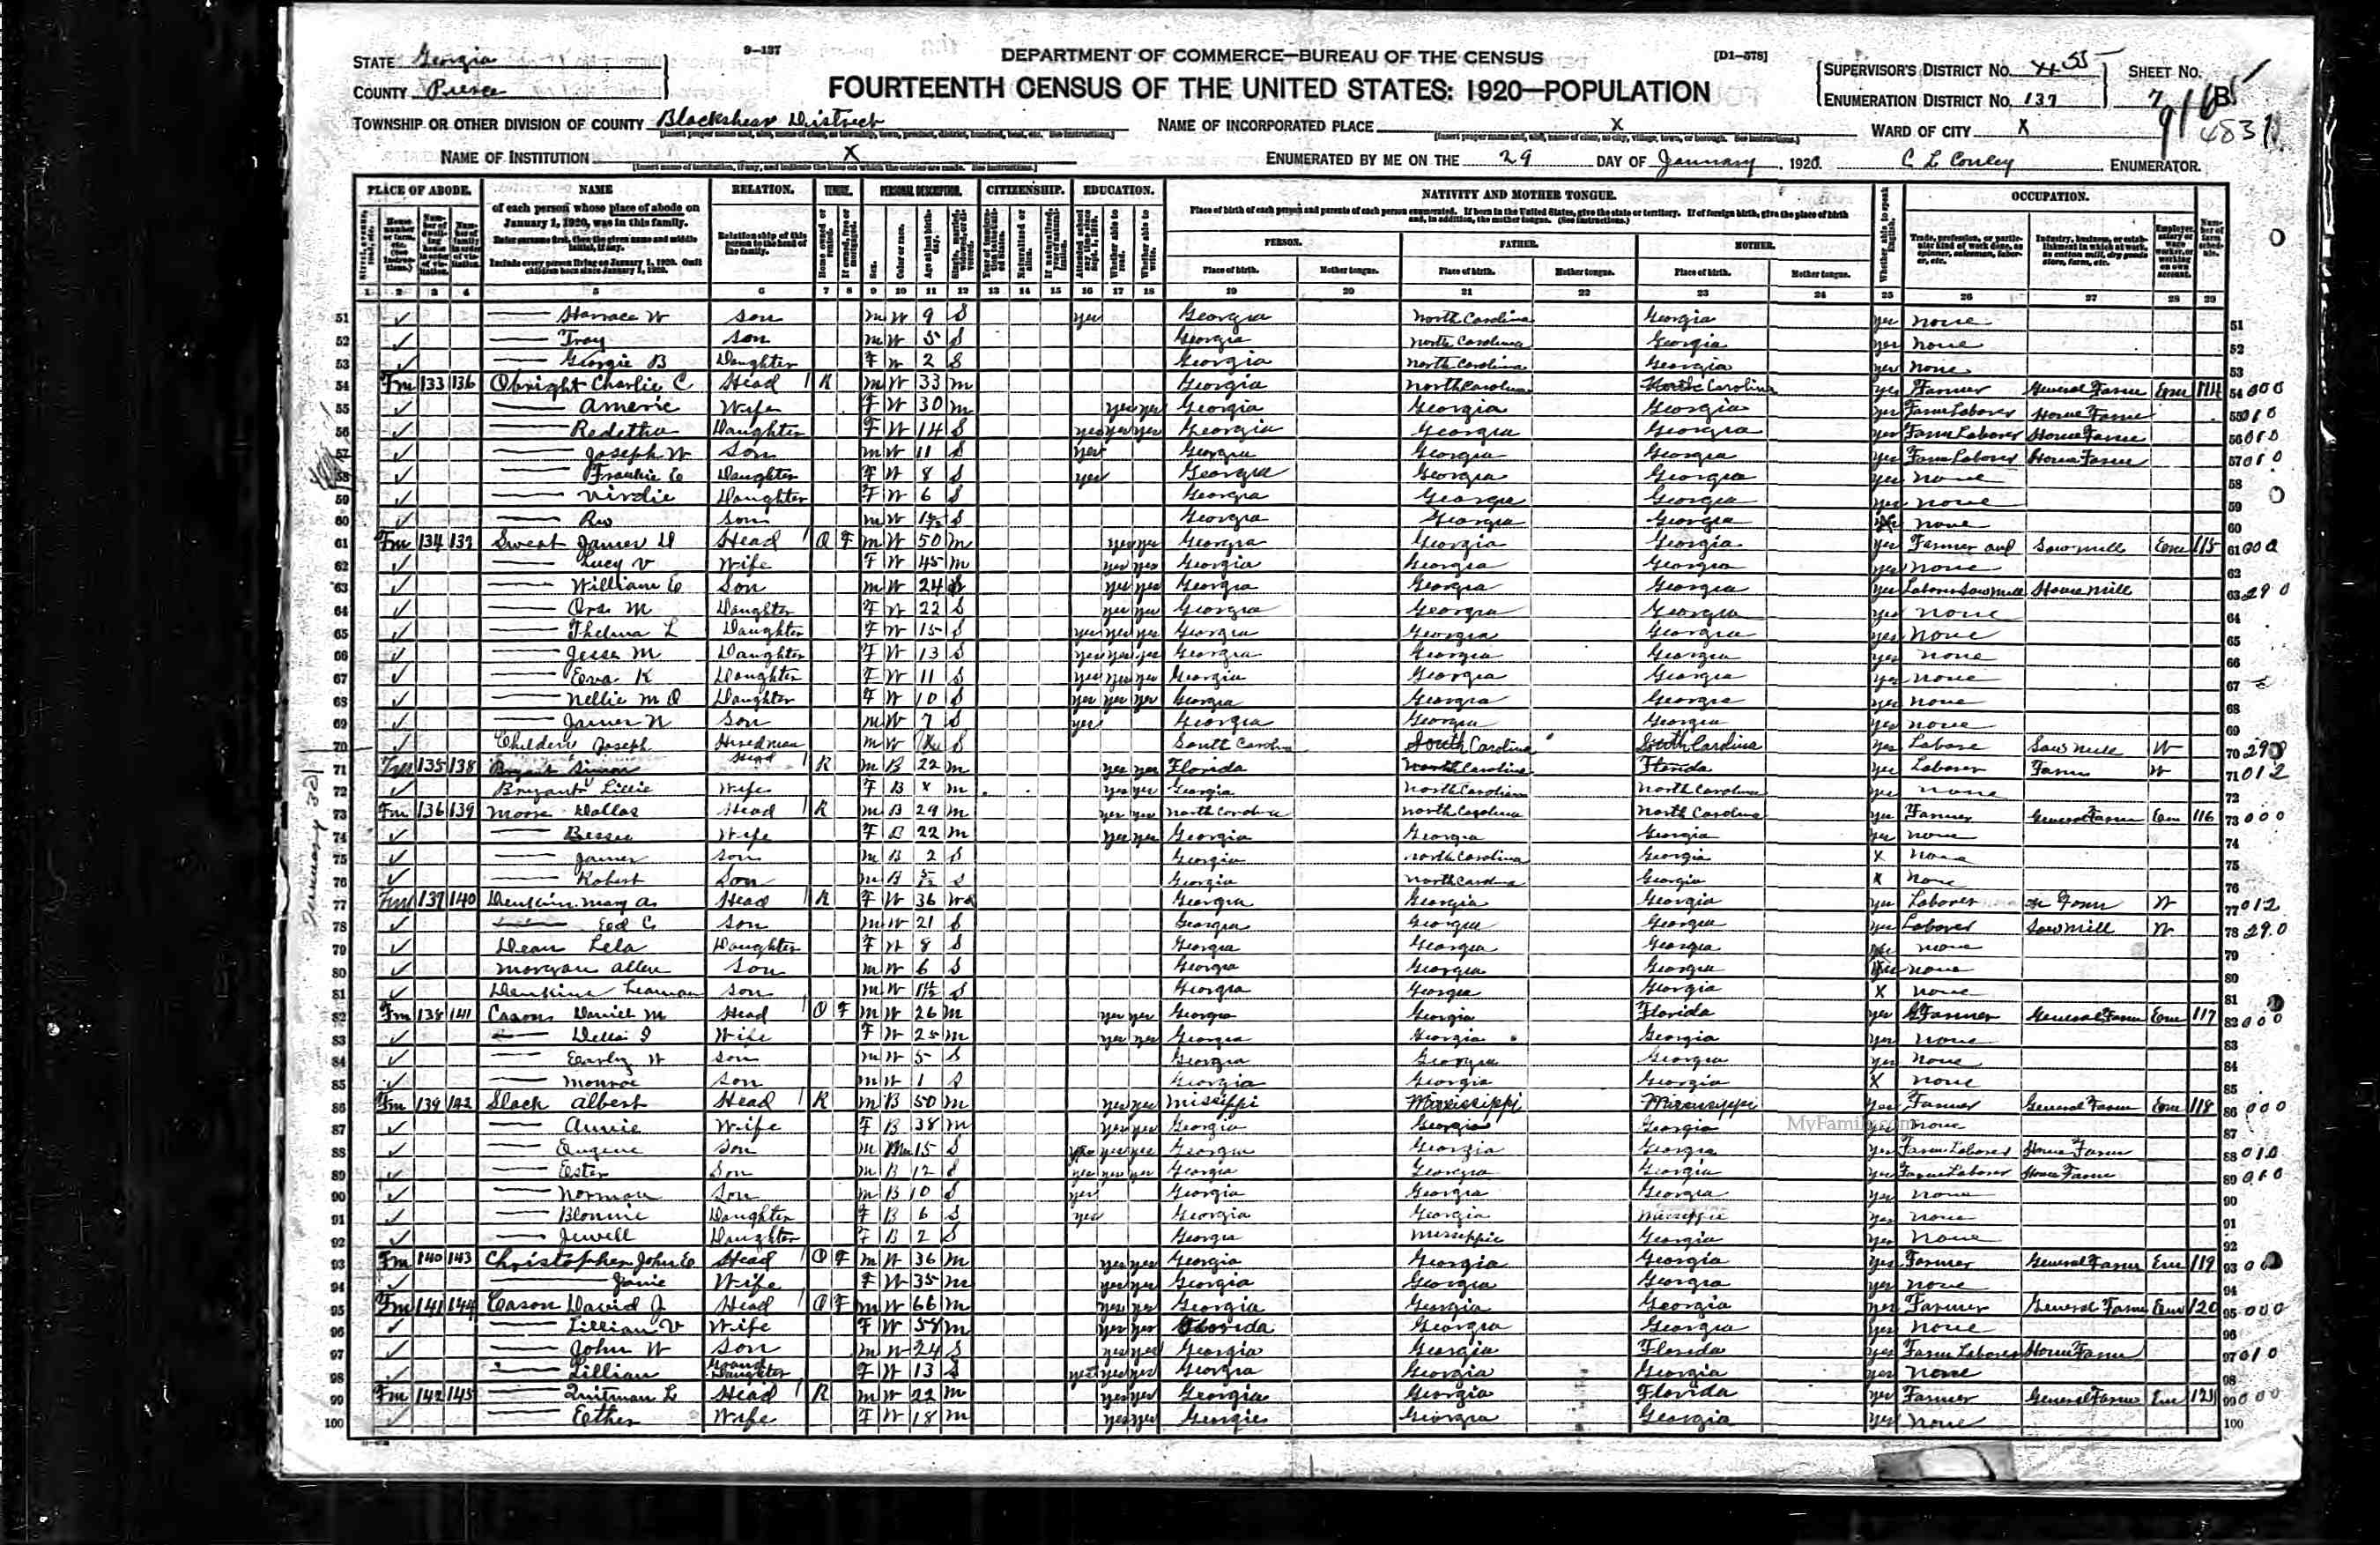 9-137
DEPARTMENT OF COMMERCE—BUREAU OF THE CENSUS
[D1-578]
STATE Georgia
COUNTY Pierce
FOURTEENTH CENSUS OF THE UNITED STATES: 1920—POPULATION
SUPERVISOR'S DISTRICT No. 55
SHEET No.
ENUMERATION DISTRICT No. 137
7 B
4831
TOWNSHIP OR OTHER DIVISION OF COUNTY Blackshear District
NAME OF INCORPORATED PLACE X
WARD OF CITY X
NAME OF INSTITUTION X
ENUMERATED BY ME ON THE 29 DAY OF January, 1920. C L Conley ENUMERATOR.
PLACE OF ABODE. NAME RELATION. TENURE. PERSONAL DESCRIPTION. CITIZENSHIP. EDUCATION. NATIVITY AND MOTHER TONGUE. OCCUPATION.
of each person whose place of abode on January 1, 1920, was in this family.
Relationship of this person to the head of the family.
PERSON. FATHER. MOTHER.
Place of birth. Mother tongue. Place of birth. Mother tongue. Place of birth. Mother tongue.
1 2 3 4 5 6 7 8 9 10 11 12 13 14 15 16 17 18 19 20 21 22 23 24 25 26 27 28 29
51 Horrace W Son m W 9 S yes Georgia North Carolina Georgia yes none 51
52 Troy Son m W 5 S Georgia North Carolina Georgia yes none 52
53 Georgie B Daughter F W 2 S Georgia North Carolina Georgia yes none 53
54 Fm 133 136 Obright Charlie C Head R m W 33 m Georgia North Carolina North Carolina yes Farmer General Farm Em 114 54 000
55 Americ Wife F W 30 m yes yes Georgia Georgia Georgia yes Farm Laborer Home Farm 55 010
56 Redetha Daughter F W 14 S yes yes yes Georgia Georgia Georgia yes Farm Laborer Home Farm 56 010
57 Joseph W Son m W 11 S yes Georgia Georgia Georgia yes Farm Laborer Home Farm 57 010
58 Frankie E Daughter F W 8 S yes Georgia Georgia Georgia yes none 58
59 Virdie Daughter F W 6 S Georgia Georgia Georgia yes none 59
60 Son m W S Georgia Georgia Georgia none 60
61 Fm 134 137 Sweat James D Head O F m W 50 m yes yes Georgia Georgia Georgia yes Farmer and Sawmill Em 115 61 000
62 Lucy V Wife F W 45 m yes yes Georgia Georgia Georgia yes none 62
63 William E Son m W 24 S yes yes Georgia Georgia Georgia yes Laborer Saw Mill Home Mill 63 290
64 Ora M Daughter F W 22 S yes yes Georgia Georgia Georgia yes none 64
65 Thelma L Daughter F W 15 S yes yes yes Georgia Georgia Georgia yes none 65
66 Jesse M Daughter F W 13 S yes yes yes Georgia Georgia Georgia yes none 66
67 Eva K Daughter F W 11 S yes yes yes Georgia Georgia Georgia yes none 67
68 Nellie M O Daughter F W 10 S yes yes yes Georgia Georgia Georgia yes none 68
69 James N Son m W 7 S yes Georgia Georgia Georgia yes none 69
70 Childers Joseph Hired man m W S South Carolina South Carolina South Carolina yes Labore Saw Mill W 70 290
71 Fm 135 138 Bryant Simon Head R m B 22 m yes yes Florida North Carolina Florida yes Laborer Farm W 71 012
72 Bryant Lillie Wife F B X m yes yes Georgia North Carolina North Carolina yes none 72
73 Fm 136 139 Moore Dallas Head R m B 29 m yes yes North Carolina North Carolina North Carolina yes Farmer General Farm Em 116 73 000
74 Bessie Wife F B 22 m yes yes Georgia Georgia Georgia yes none 74
75 James Son m B 2 S Georgia North Carolina Georgia X none 75
76 Robert Son m B S Georgia North Carolina Georgia X none 76
77 Fm 137 140 Denkins Mary A Head R F W 36 Wd Georgia Georgia Georgia yes Laborer Farm W 77 012
78 Eed C Son m W 21 S Georgia Georgia Georgia yes Laborer Saw Mill W 78 290
79 Dean Lela Daughter F W 8 S Georgia Georgia Georgia yes none 79
80 Morgan Allen Son m W 6 S Georgia Georgia Georgia yes none 80
81 Denkins Leaman Son m W S Georgia Georgia Georgia X none 81
82 Fm 138 141 Cason Daniel M Head O F m W 26 m yes yes Georgia Georgia Florida yes Farmer General Farm Em 117 82 000
83 Della I Wife F W 25 m yes yes Georgia Georgia Georgia yes none 83
84 Early W Son m W 5 S Georgia Georgia Georgia yes none 84
85 Monroe Son m W 1 S Georgia Georgia Georgia X none 85
86 Fm 139 142 Slack Albert Head R m B 50 m yes yes Misseppi Mississippi Mississippi yes Farmer General Farm Em 118 86 000
87 Annie Wife F B 38 m yes yes Georgia Georgia Georgia yes none 87
88 Eugene Son m 15 S yes yes yes Georgia Georgia Georgia yes Farm Laborer Home Farm 88 010
89 Ester Son m B 12 S yes yes yes Georgia Georgia Georgia yes Farm Laborer Home Farm 89 010
90 Norman Son m B 10 S yes Georgia Georgia Georgia yes none 90
91 Blonnie Daughter F B 6 S yes Georgia Georgia yes none 91
92 Jewell Daughter F B 2 S Georgia Misseppie Georgia yes none 92
93 Fm 140 143 Christopher John E Head O F m W 36 m yes yes Georgia Georgia Georgia yes Farmer General Farm Em 119 93
94 Janie Wife F W 35 m yes yes Georgia Georgia Georgia yes none 94
95 Fm 141 144 Cason David J Head O F m W 66 m yes yes Georgia Georgia Georgia yes Farmer General Farm Em 120 95 000
96 Lillian V Wife F W 58 m yes yes Florida Georgia Georgia yes none 96
97 John W Son m W 24 S yes yes Georgia Georgia Florida yes Farm Laborer Home Farm 97 010
98 Lillian Grand Daughter F W 13 S yes yes yes Georgia Georgia Georgia yes none 98
99 Fm 142 145 Quitman L Head R m W 22 m yes yes Georgia Georgia Florida yes Farmer General Farm Em 121 99 000
100 Esther Wife F W 18 m yes yes Georgia Georgia Georgia yes none 100
January 30
MyFamily.com